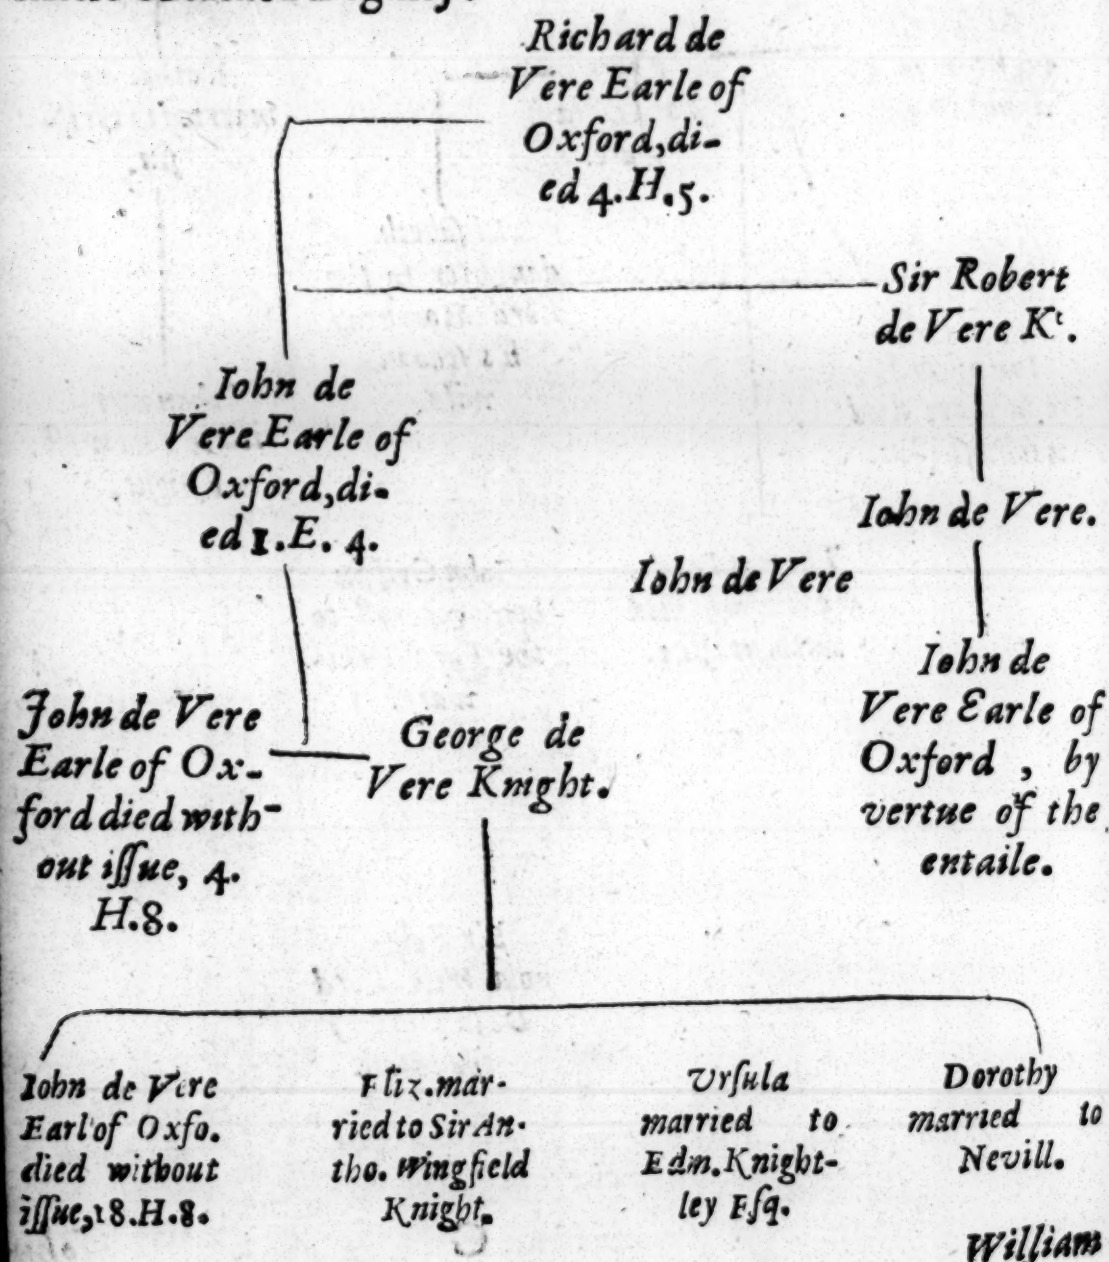 Richard de
Vere Earle of
Oxford, di-
ed 4. H. 5.
Sir Robert
de Vere Kt.
Iohn de
Vere Earle of
Oxford, di-
ed 1. E. 4.
Iohn de Vere.
Iohn de Vere
Iohn de
Vere Earle of
Oxford , by
vertue of the
entaile.
John de Vere
Earle of Ox-
ford died with-
out iſſue, 4.
H. 8.
George de
Vere Knight.
Iohn de Vere
Earl of Oxfo.
died without
iſſue, 18. H. 8.
Eliz. mar-
ried to Sir An-
tho. Wingfield
Knight.
Vrſula
married to
Edm. Knight-
ley Eſq.
Dorothy
married to
Nevill.
William